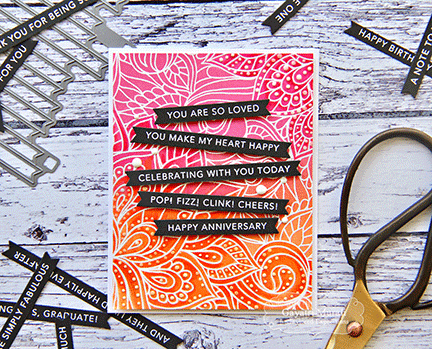 YOU ARE SO LOVED
YOU MAKE MY HEART HAPPY
CELEBRATING WITH YOU TODAY
POP! FIZZ! CLINK! CHEERS!
HAPPY ANNIVERSARY
YOU FOR BEING S
FOR YOU
SEE ONE
HAPPY BIRTH
A NOTE TO
D HAPPILY EVER AFTER
SIMPLY FABULOUS
S, GRADUATE!
AND THEY LI
Gayatri